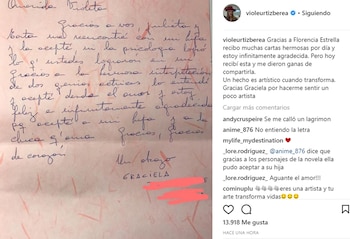 Querida Violeta
Gracias a vos, Julieta y
me reencontré con mi hija
y la acepté, en la psicología logró
lo q' ustedes lograron en mi
Gracias a la hermosa interpretación
de dos genias actrices
y acepté desde el amor y estoy
feliz e infinitamente agradecida
acepto a mi hija y a la
chica q' ama Gracias, gracias
de corazón
Un abrazo
GRACIELA
violeurtizberea • Siguiendo
violeurtizberea Gracias a Florencia Estrella
recibo muchas cartas hermosas por día y
estoy infinitamente agradecida. Pero hoy
recibí esta y me dieron ganas de
compartirla.
Un hecho es artístico cuando transforma.
Gracias Graciela por hacerme sentir un
poco artista
Cargar más comentarios
andycruspeire Se me calló un lagrimon
anime_876 No entiendo la letra
my_life_mydestination ❤
_lore.rodriguez_ @anime_876 dice que
gracias a los personajes de la novela ella
pudo aceptar a su hija
_lore.rodriguez_ Aguante el amor!!!
cominuplu 👏👏👏👏eres una artista y tu
arte transforma vidas😍😍😍
13.918 Me gusta
HACE UNA HORA